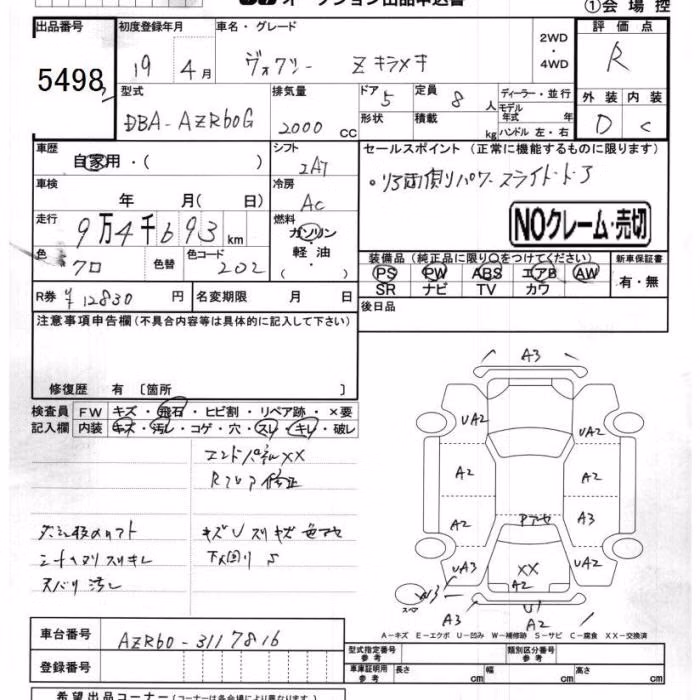 オークション出品申込書
①会場控
出品番号 初度登録年月 車名・グレード 評価点
5498 19年 4月 ヴォクシー Z キラメキ 2WD・4WD R
型式 排気量 ドア 5 定員 8人 ディーラー・並行 外装 内装
DBA-AZR60G 2000 CC 形状 積載 kg モデル年式 年 ハンドル 左・右 D C
車歴 自家用・( ) シフト 2AT セールスポイント (正常に機能するものに限ります)
車検 年 月(日) 冷房 AC
NOクレーム・売切
走行 9万4千693km 燃料 ガソリン・軽油・( )
色 クロ 色替 色コード 202
装備品 (純正品に限り○をつけてください) 新車保証書
PS PW ABS エアB AW 有・無
SR ナビ TV カワ
R券 ¥12830円 名変期限 月 日 後日品
注意事項申告欄 (不具合内容等は具体的に記入して下さい)
修復歴 有 [箇所 ]
検査員 FW キズ・飛石・ヒビ割・リペア跡・×要
記入欄 内装 キズ・汚レ・コゲ・穴・スレ・キレ・破レ
エンドパネルXX
Rフロア修正
キズUスリキズ色アセ
シートヘタリスリキレ
下回りS
A3
UA2 UA2
A2 A2
A2 A3
Pアセ
UA3 XX A2 UA3
W3
スペア
A3 U1 A2
A-キズ E-エクボ U-凹み W-補修跡 S-サビ C-腐食 XX-交換済
車台番号 AZR60-3117816
登録番号
型式指定番号 参考 類別区分番号 参考
車庫証明用 参考 長さ cm 幅 cm 高さ cm
希望出品コーナー (コーナーは各会場により異なります)